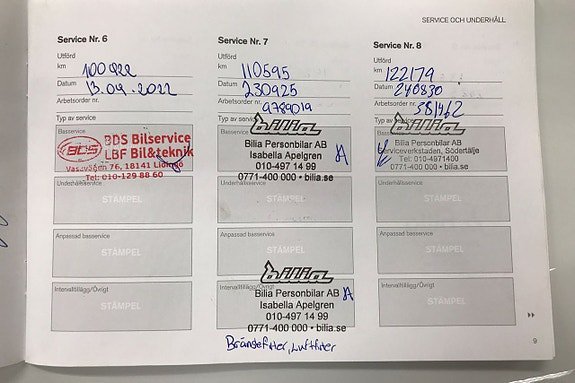 SERVICE OCH UNDERHÅLL
Service Nr. 6
Utförd
km 100922
Datum 13.04.2022
Arbetsorder nr.
Typ av service
Basservice
BDS
BDS Bilservice
LBF Bil&teknik
Vasavägen 76, 18141 Lidingö
Tel: 010-129 88 60
Underhållsservice
STÄMPEL
Anpassad basservice
STÄMPEL
Intervalltillägg/Övrigt
STÄMPEL
Service Nr. 7
Utförd
km 110595
Datum 230925
Arbetsorder nr. 9789019
Typ av service
Basservice
bilia
Bilia Personbilar AB
Isabella Apelgren
010-497 14 99
0771-400 000 • bilia.se
Underhållsservice
STÄMPEL
Anpassad basservice
STÄMPEL
bilia
Intervalltillägg/Övrigt
Bilia Personbilar AB
Isabella Apelgren
010-497 14 99
0771-400 000 • bilia.se
Bränslefilter, Luftfilter
Service Nr. 8
Utförd
km 122179
Datum 240830
Arbetsorder nr. 381462
Typ av service
Basservice
bilia
Bilia Personbilar AB
Serviceverkstaden, Södertälje
Tel: 010-4971400
0771-400 000 • bilia.se
Underhållsservice
STÄMPEL
Anpassad basservice
STÄMPEL
Intervalltillägg/Övrigt
STÄMPEL
9